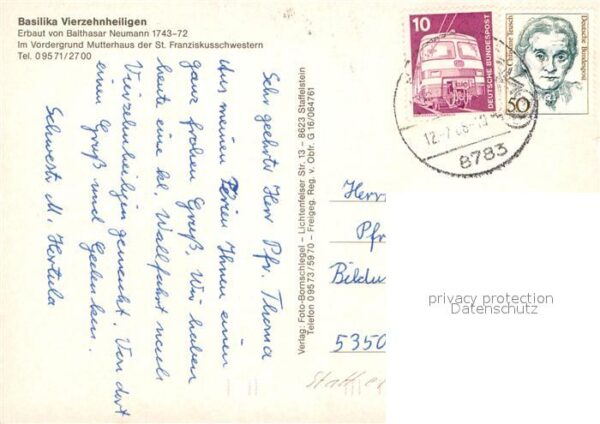 Basilika Vierzehnheiligen
Erbaut von Balthasar Neumann 1743–72
Im Vordergrund Mutterhaus der St. Franziskusschwestern
Tel. 09571/2700
Sehr geehrter Herr Pfr. Thoma
Aus meinen Ferien Ihnen einen
ganz frohen Gruß. Wir haben
heute eine kl. Wallfahrt nach
Vierzehnheiligen gemacht. Von dort
einen Gruß und Gedenken.
Schwester M. Hertula
Verlag: Foto-Bornschlegel – Lichtenfelser Str. 13 – 8623 Staffelstein
Telefon 09573/5970 – Freigeg. Reg. v. Obfr. G 16/064761
10
DEUTSCHE BUNDESPOST
Christine Teusch
Deutsche Bundespost
50
8783
Herr
Pfr
Bildu
5350
privacy protection
Datenschutz